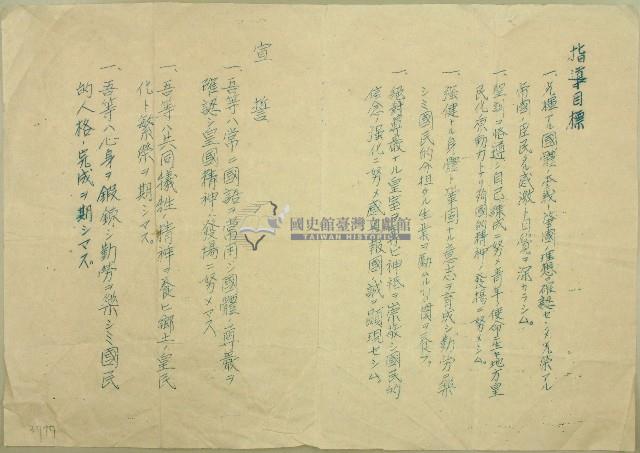 指導目標
一、光輝アル國體ノ本義、肇國ノ理想ヲ確認セシメ光榮アル
帝國ノ臣民タル感激ト自覺ヲ深カラシム。
自己錬成ニ努メ青年ノ使命
民化ノ原動力トナリ殉國的精神ノ發揚ニ努メシム。
一、強健ナル身體ト鞏固ナル意志ヲ育成シ勤勞ヲ樂
シミ國民的分担タル生業ヲ励ムルノ習慣ヲ養フ。
一、絕對尊嚴ナル皇室 神祇ヲ崇敬シ國民的
信念ノ強化ニ努メ感恩報國ノ誠ヲ顯現セシム。
宣誓
一、吾等ハ常ニ國語ヲ常用シ國體ノ尊嚴ヲ
確認シ皇國精神ノ發揚ニ努メマス
一、吾等ハ共同犧牲ノ精神ヲ養ヒ鄉土ノ皇民
化ト繁榮ヲ期シマス
一、吾等ハ心身ヲ鍛錬シ勤勞ヲ樂シミ國民
的人格ノ完成ヲ期シマス
國史館臺灣文獻館
TAIWAN HISTORICA